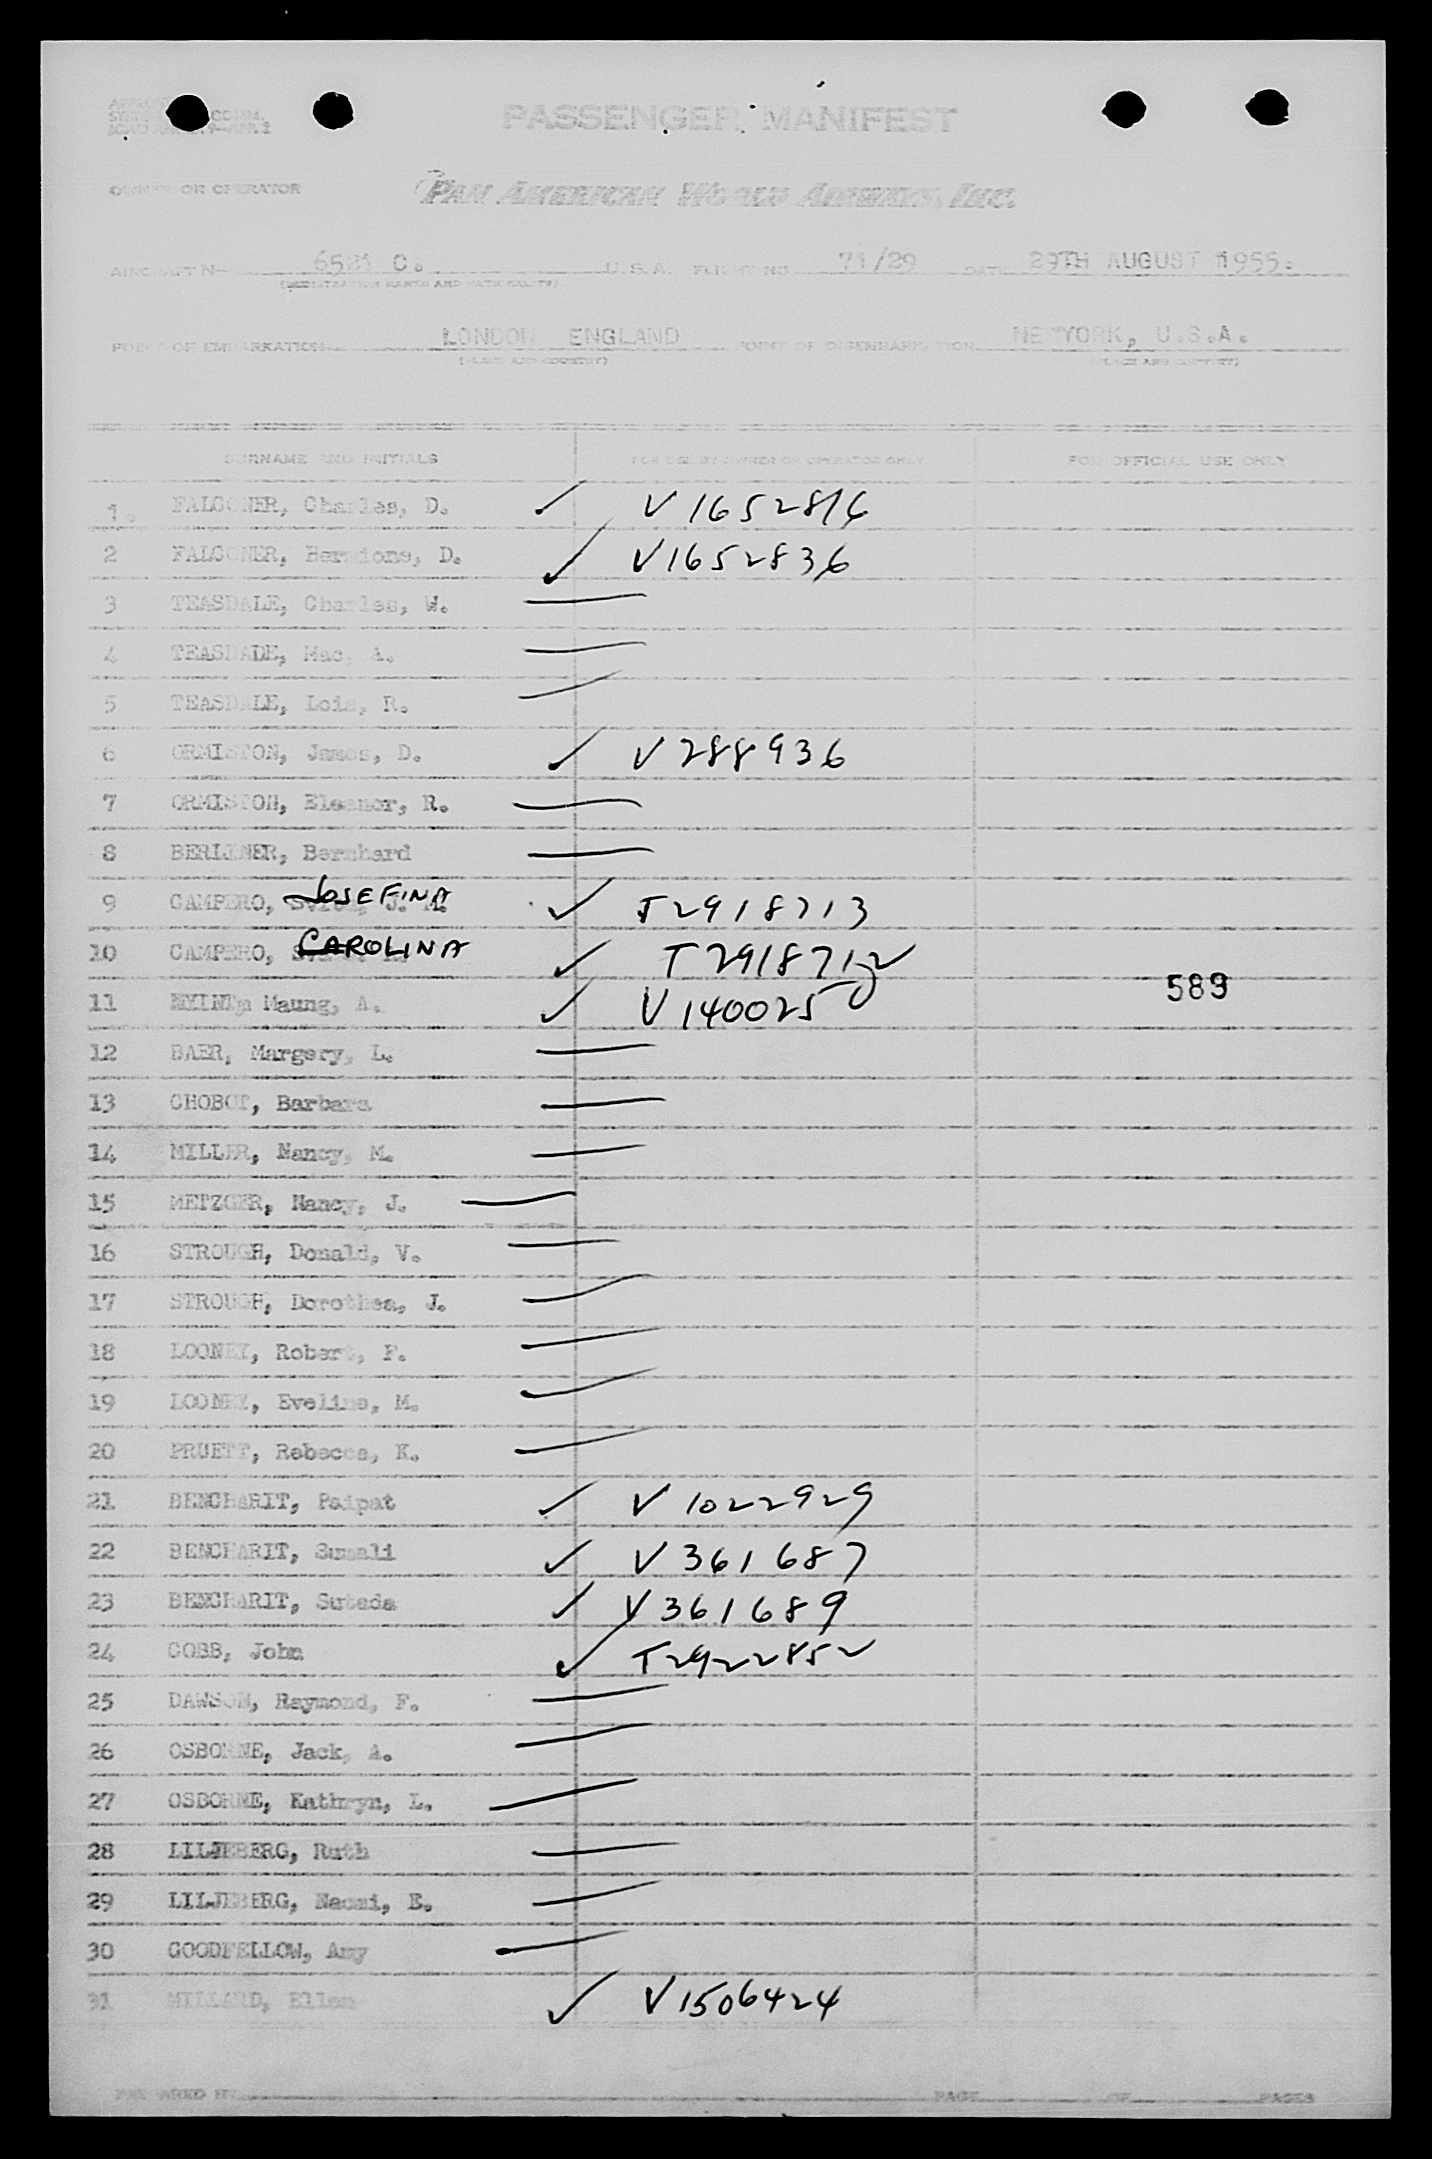 PASSENGER MANIFEST
OWNER OR OPERATOR PAN AMERICAN WORLD AIRWAYS, INC.
AIRCRAFT No 6521 C. U.S.A. FLIGHT NO 71/29 DATE 29TH AUGUST 1955.
(REGISTRATION MARKS AND NATIONALITY)
POINT OF EMBARKATION LONDON ENGLAND POINT OF DISEMBARKATION NEWYORK, U.S.A.
(PLACE AND COUNTRY) (PLACE AND COUNTRY)
SURNAME AND INITIALS FOR USE BY OWNER OR OPERATOR ONLY FOR OFFICIAL USE ONLY
1. FALCONER, Charles, D. ✓ V1652816
2 FALCONER, Hermione, D. ✓ V1652836
3 TEASDALE, Charles, W. —
4 TEASDADE, Mac, A. —
5 TEASDALE, Lois, R. —
6 ORMISTON, James, D. ✓ V288936
7 ORMISTON, Eleanor, R. —
8 BERLINER, Bernhard —
9 CAMPERO, JOSEFINA ✓ T2918713
10 CAMPERO, CAROLINA ✓ T2918712
11 MYINT, Maung, A. ✓ V140025 589
12 BAER, Margery, L. —
13 CHOBOT, Barbara —
14 MILLER, Nancy, M. —
15 METZGER, Nancy, J. —
16 STROUGH, Donald, V. —
17 STROUGH, Dorothea, J. —
18 LOONEY, Robert, F. —
19 LOONEY, Eveline, M. —
20 PRUETT, Rebecca, K. —
21 BENCHARIT, Paipat ✓ V1022929
22 BENCHARIT, Sumali ✓ V361687
23 BENCHARIT, Suteda ✓ V361689
24 COBB, John ✓ T2922852
25 DAWSON, Raymond, F. —
26 OSBORNE, Jack, A. —
27 OSBORNE, Kathryn, L. —
28 LILJEBERG, Ruth —
29 LILJEBERG, Naomi, E. —
30 GOODFELLOW, Amy —
31 MILLARD, Ellen ✓ V1506424
PREPARED BY PAGE OF PAGES